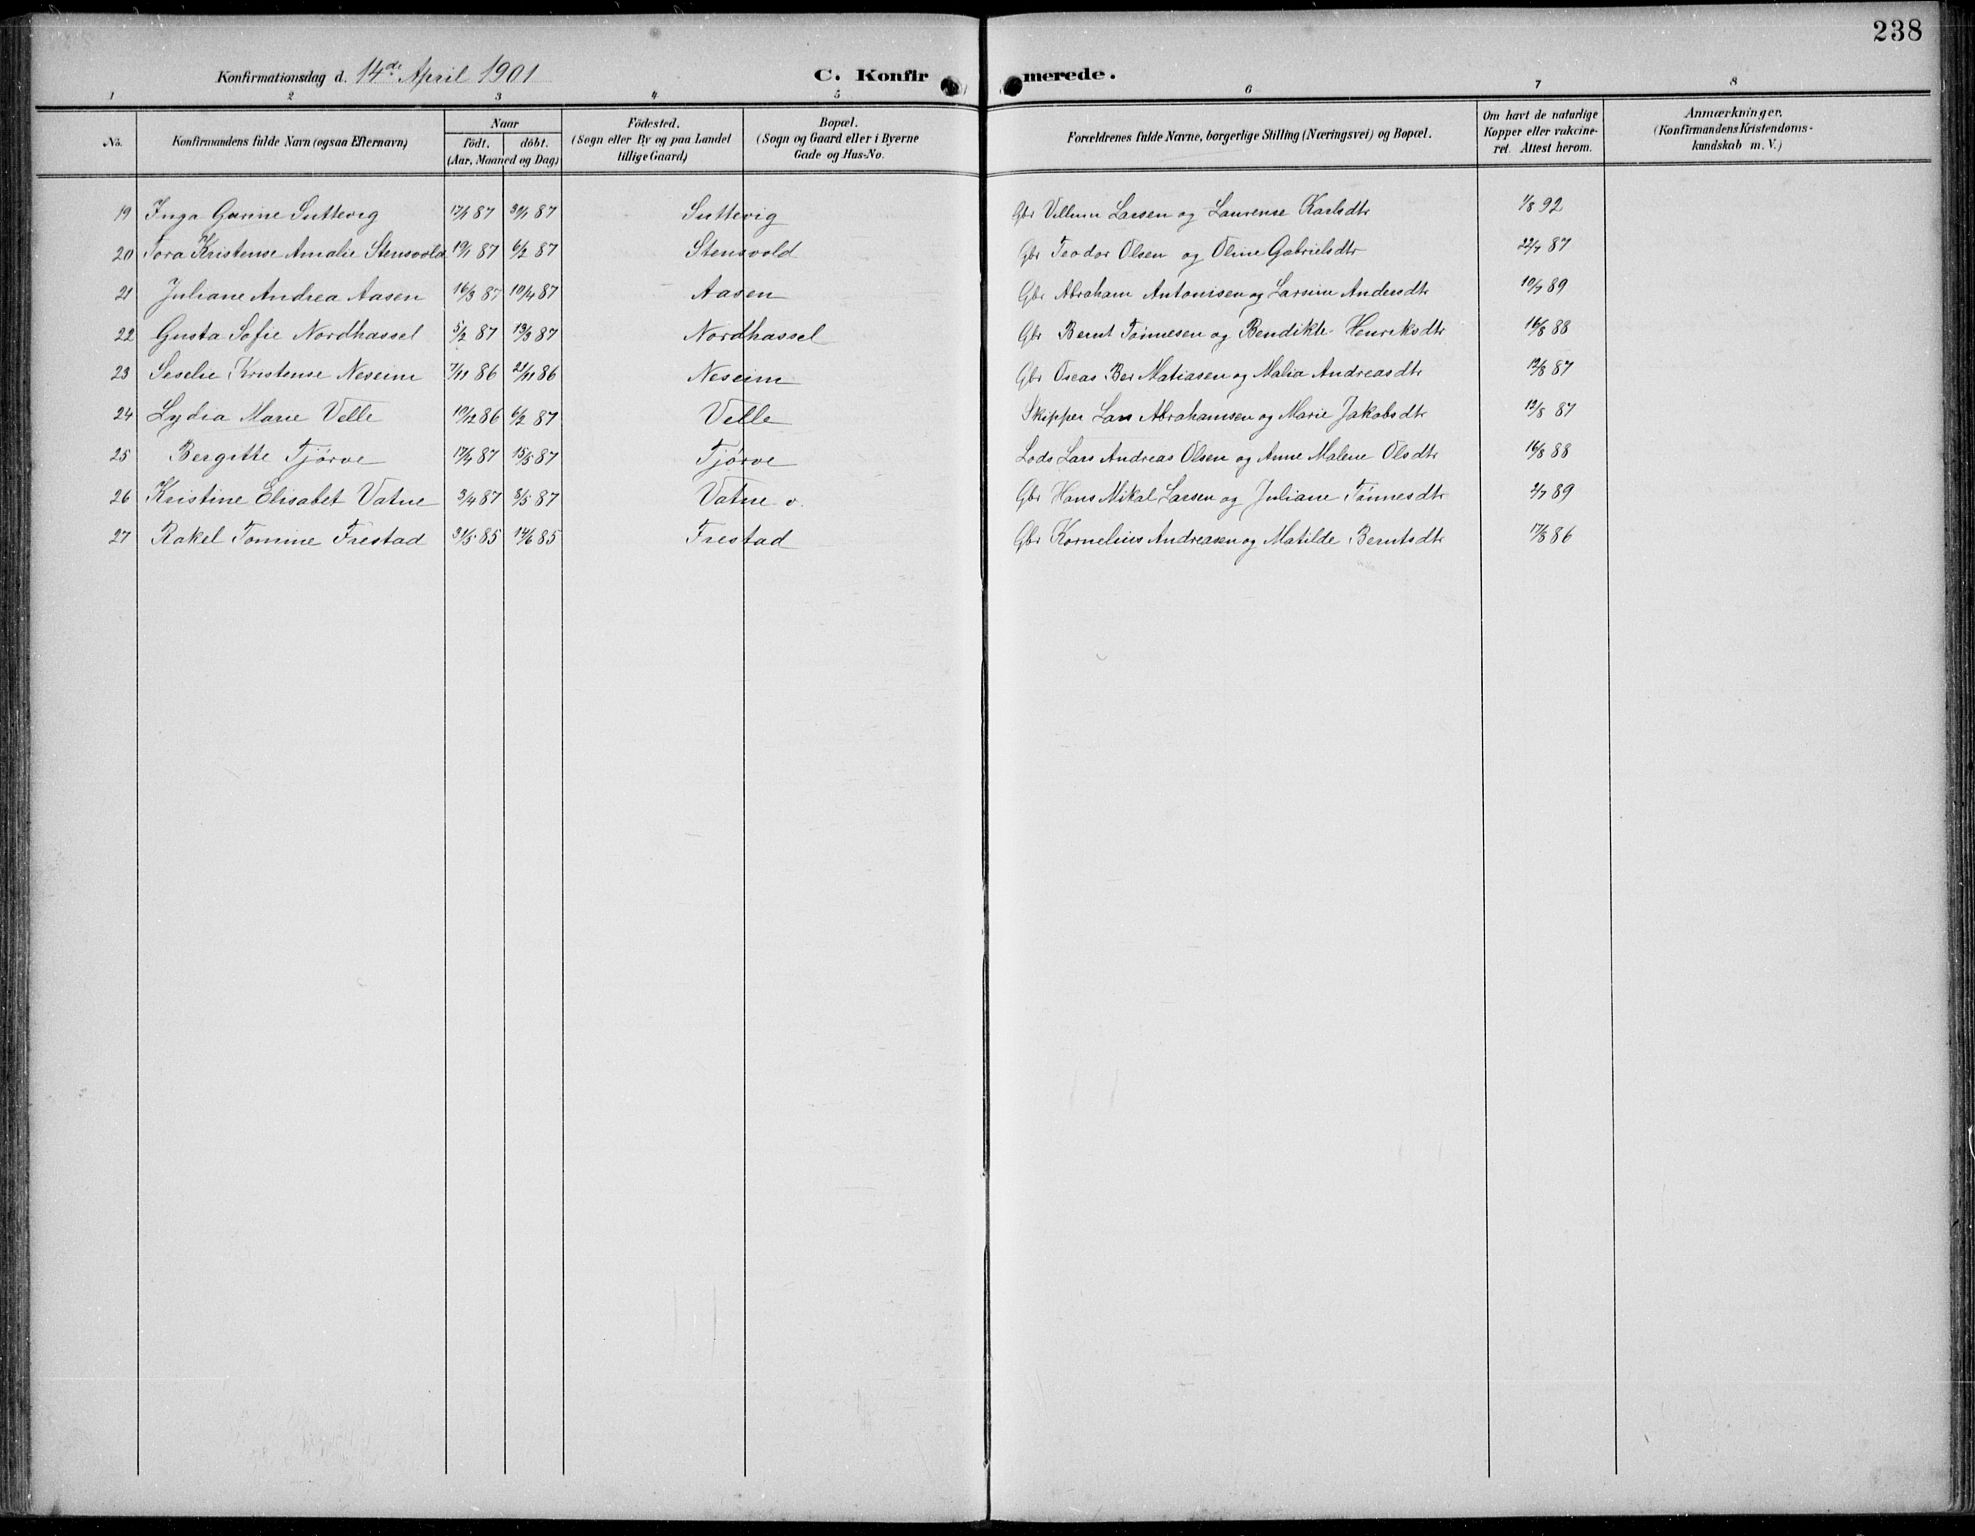 238
Konfirmationsdag d. 14de April 1901 C. Konfirmerede.
1 2 3 4 5 6 7 8
No. Konfirmandens fulde Navn (ogsaa Efternavn) Naar födt. döbt. (Aar, Maaned og Dag) Födested. (Sogn eller By og paa Landet tillige Gaard) Bopæl. (Sogn og Gaard eller i Byerne Gade og Hus-No. Forældrenes fulde Navne, borgerlige Stilling (Næringsvei) og Bopæl. Om havt de naturlige Kopper eller vakcineret. Attest herom. Anmærkninger. (Konfirmandens Kristendomskundskab m. V.)
19 Inga Garine Suttevig 17/1 87 30/1 87 Suttevig Gbr Villum Larsen og Laurense Karlsdtr 1/8 92
20 Tora Kristense Amalie Stensvold 19/1 87 6/2 87 Stensvold Gbr Teodor Olsen og Oline Gabrielsdtr 22/7 87
21 Juliane Andrea Aasen 16/3 87 10/4 87 Aasen Gbr Abraham Antonisen og Larsine Andersdtr 10/7 89
22 Gusta Sofie Nordhassel 5/2 87 13/3 87 Nordhassel Gbr Bernt Tönnesen og Bendikte Henriksdtr 16/8 88
23 Seselie Kristense Neseim 7/11 86 21/11 86 Neseim Gbr Oseas Ber Matiasen og Malia Andreasdtr 12/8 87
24 Lydia Marie Velle 10/12 86 6/2 87 Velle Skipper Lars Abrahamsen og Marie Jakobsdtr 12/8 87
25 Bergitte Tjørve 17/4 87 15/5 87 Tjørve Lods Lars Andreas Olsen og Anne Malene Olsdtr 16/8 88
26 Kristine Elisabet Vatne 3/4 87 8/5 87 Vatne v. Gbr Hans Mikal Larsen og Juliane Tönnesdtr 2/7 89
27 Rakel Tomine Frestad 31/5 85 14/6 85 Frestad Gbr Kornelius Andreasen og Matilde Berntsdtr 17/8 86